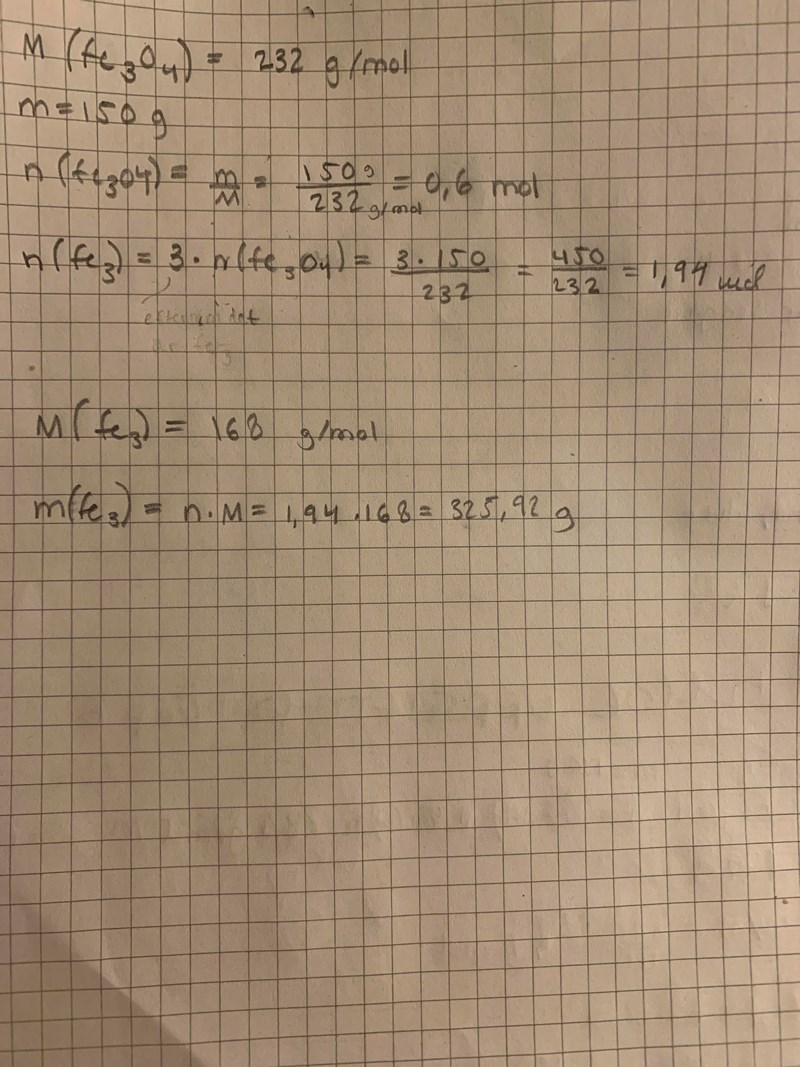 M (Fe₃O₄) = 232 g/mol
m = 150 g
n (Fe₃O4) = m/M = 150 g/232 g/mol = 0,6 mol
n (Fe₃) = 3 · n (Fe₃O4) = 3 · 150/232 = 450/232 = 1,94 mol
M (Fe₃) = 168 g/mol
m(Fe₃) = n · M = 1,94 · 168 = 325,92 g